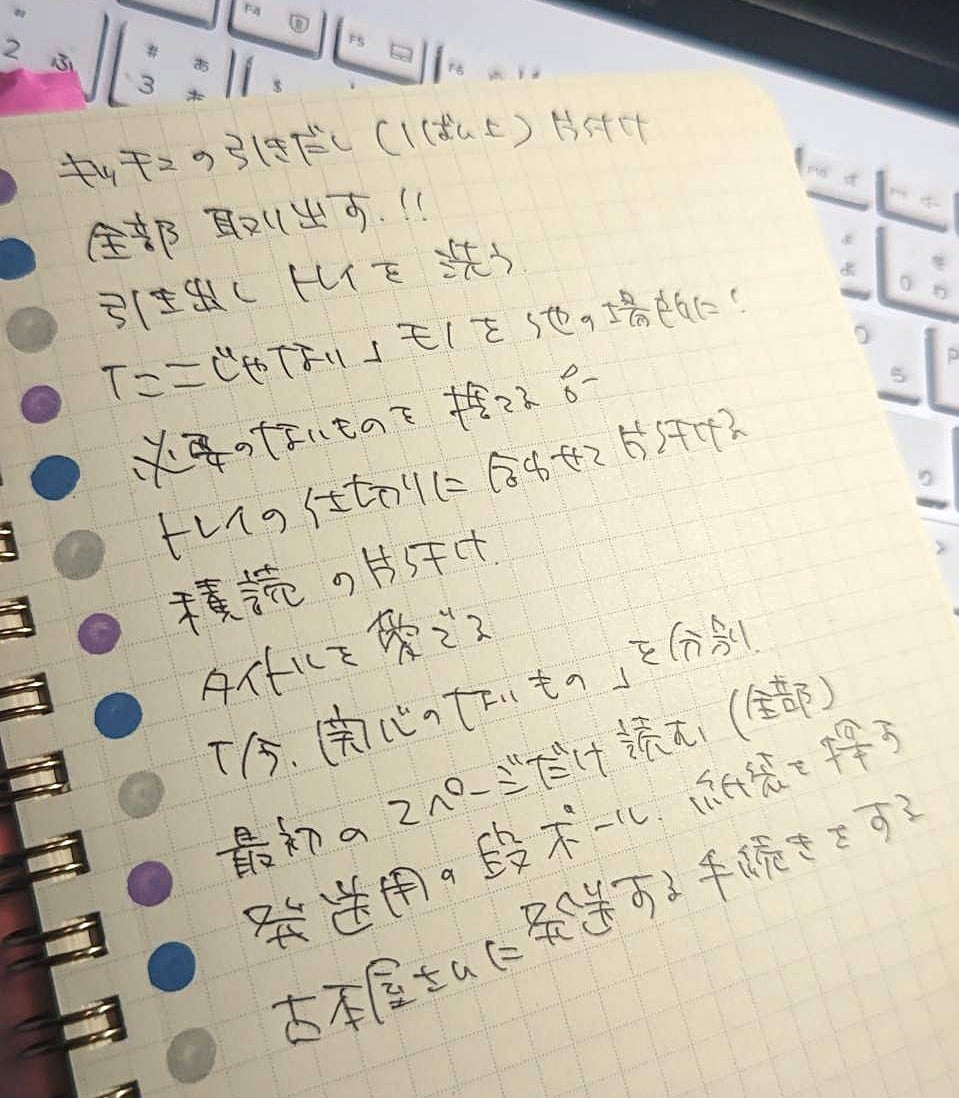 キッチンの引きだし(1ばん上)片付け
全部 取り出す.!!
引き出し トレイを 洗う
「ここじゃない」モノを 他の場所に!
必要のないものを 捨てる
トレイの仕切りに 合わせて 片付ける
積読 の片付け.
タイトルを 愛でる
「今、関心のないもの」を分別.
最初の 2ページだけ 読む (全部)
発送用の 段ボール. 紙袋を 探す
古本屋さんに 発送する 手続きをする
F4
F5
F6
2 ふ
# あ
3
$
P